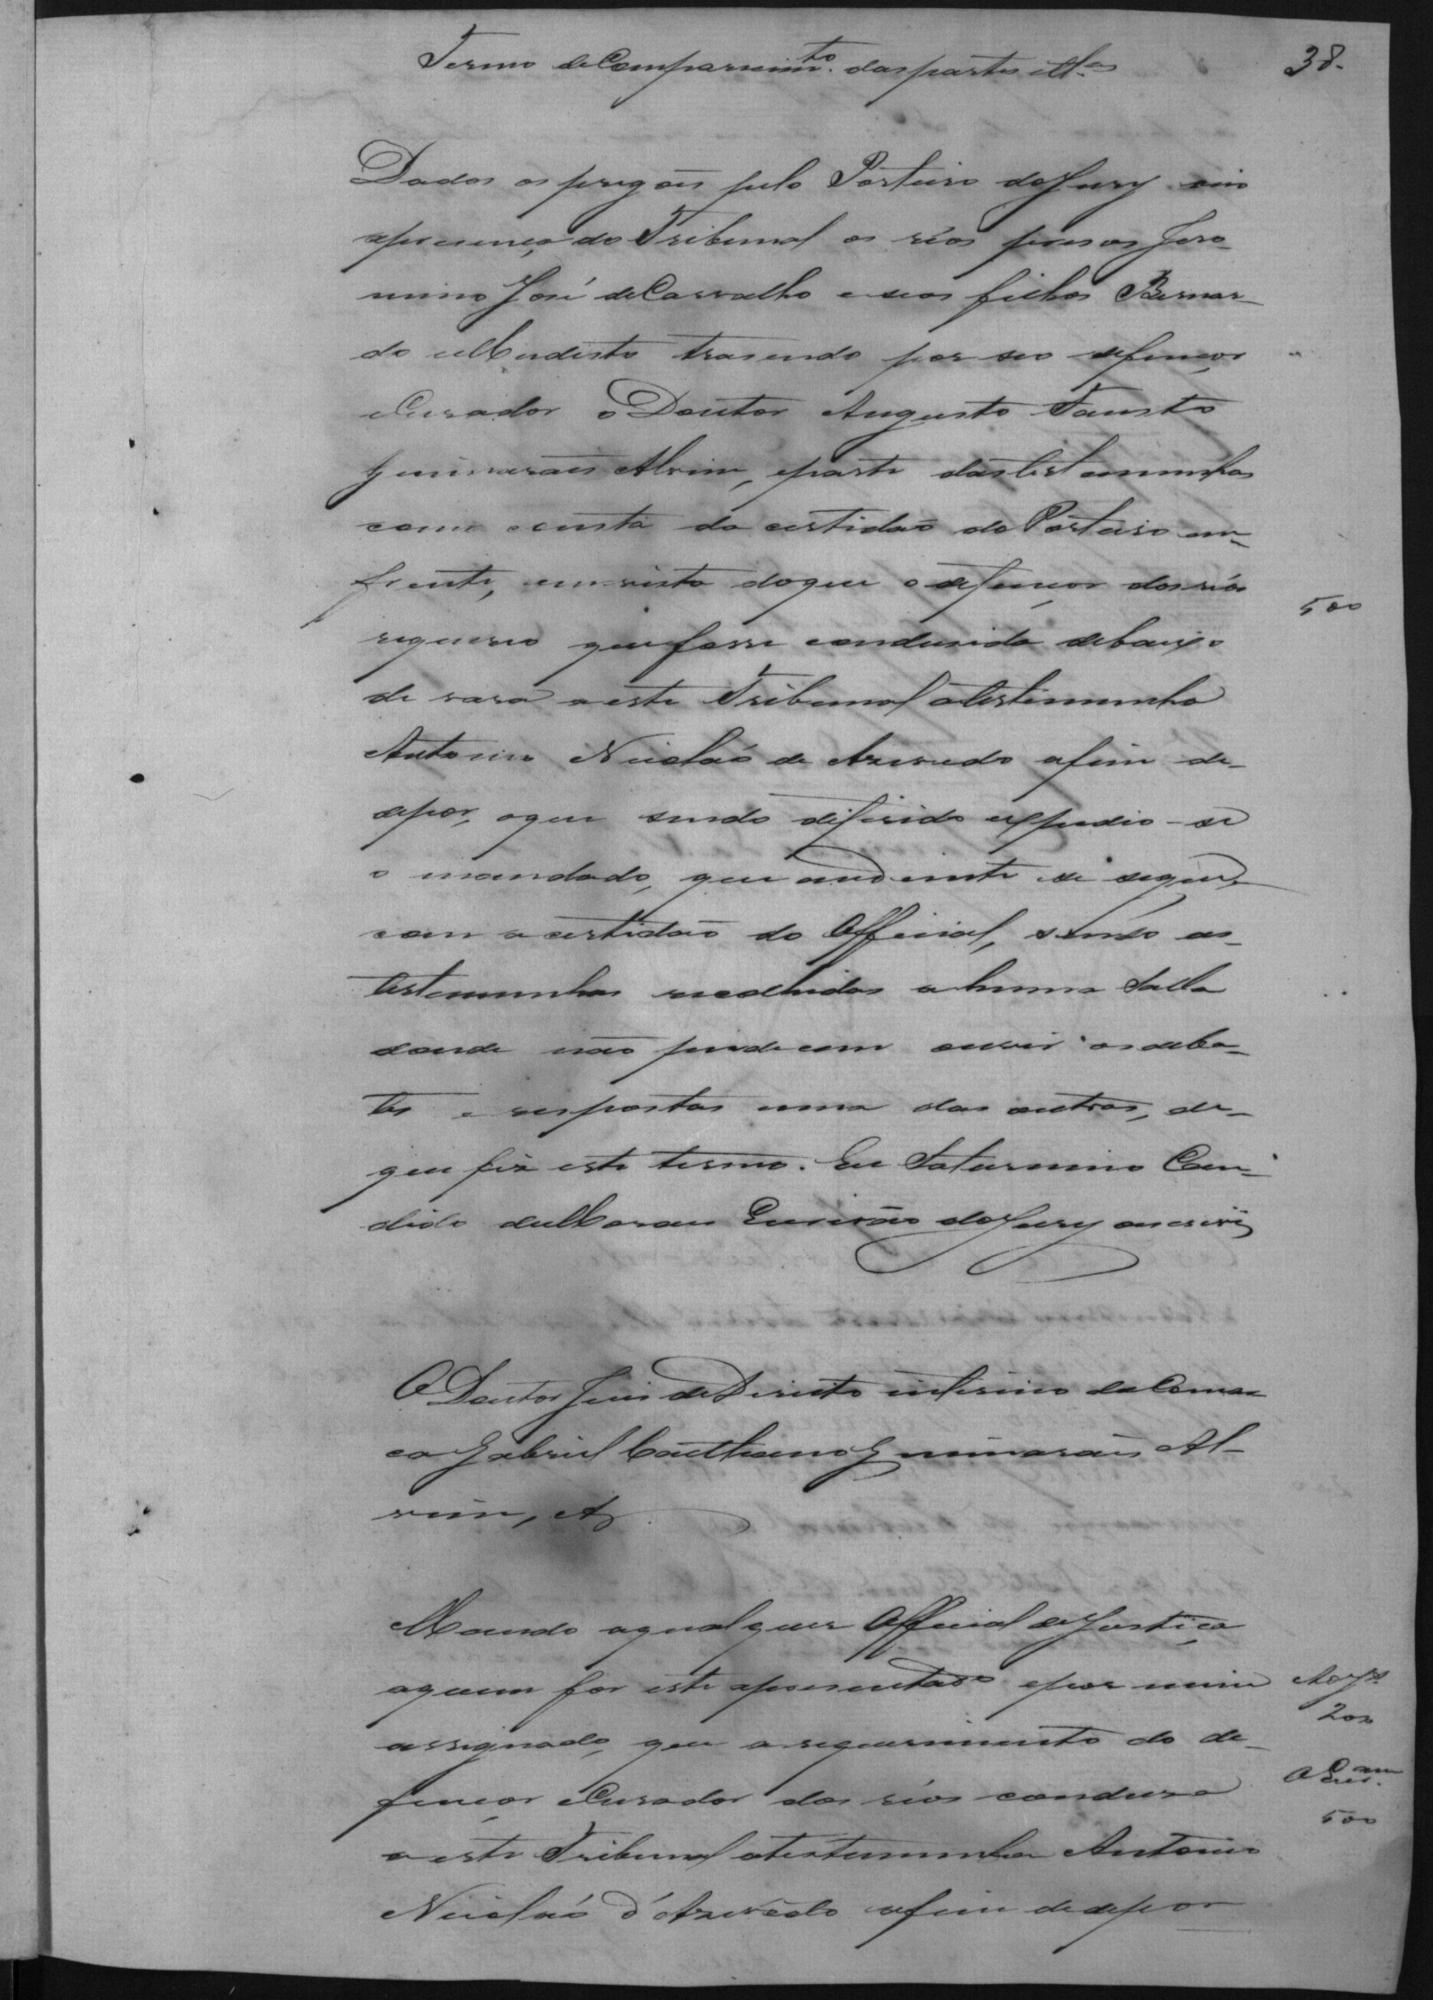 Termo de Comparecim.to das partes e
38.
Dados os pregões pelo Porteiro do Jury veio
a presença do Tribunal os réos presos Jero-
nimo José de Carvalho e seos filhos Bernar-
do e Modesto trasendo por seo defençor
e Curador o Doutor Augusto Fausto
Guimarães Alvim, e parte das testemunhas
como consta da certidão do Porteiro em
frente, em vista do que o defençor dos réos
500
requereo que fosse condusida debaixo
de vara a este Tribunal a testemunha
Antonio Nicoláo de Azevedo afim de
depor, o que sendo difirido expedio-se
o mandado, que aodiente se segue,
com a certidão do Official, sendo as
testemunhas recolhidas a huma Salla
donde não podecem ouvir os deba-
tes e respostas uma das outras, de
que fiz este termo. Eu Saturnino Can-
dido de Moraes Escrivão do Jury o escrevi
O Doutor Juis de Direito interino da Comar-
ca Gabriel Caetano Guimarães Al-
vim, &
Mando a qualquer Official de Justiça
a quem for este apresentado e por mim
200
assignado, que a requerimento do de-
fençor e Curador dos réos condusa
500
a este Tribunal a testemunha Antonio
Nicoláo d'Azevedo afim de depor